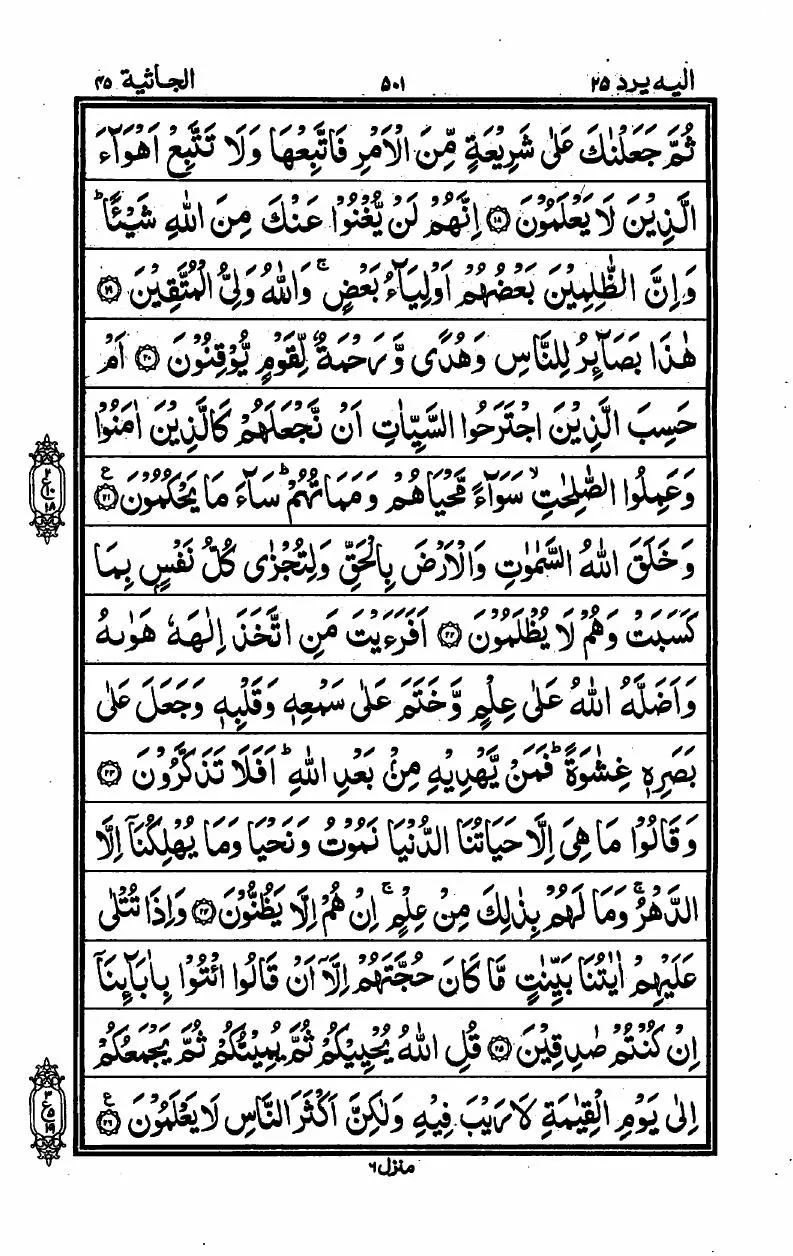 اليه يرد ٢٥ ٥٠١ الجاثية ٤٥
ثُمَّ جَعَلْنٰكَ عَلٰى شَرِيْعَةٍ مِّنَ الْاَمْرِ فَاتَّبِعْهَا وَلَا تَتَّبِعْ اَهْوَآءَ
الَّذِيْنَ لَا يَعْلَمُوْنَ ۝١٨ اِنَّهُمْ لَنْ يُّغْنُوْا عَنْكَ مِنَ اللّٰهِ شَيْـًٔا ؕ
وَاِنَّ الظّٰلِمِيْنَ بَعْضُهُمْ اَوْلِيَآءُ بَعْضٍ ۚ وَاللّٰهُ وَلِيُّ الْمُتَّقِيْنَ ۝١٩
هٰذَا بَصَآئِرُ لِلنَّاسِ وَهُدًى وَّرَحْمَةٌ لِّقَوْمٍ يُّوْقِنُوْنَ ۝٢٠ اَمْ
حَسِبَ الَّذِيْنَ اجْتَرَحُوا السَّيِّاٰتِ اَنْ نَّجْعَلَهُمْ كَالَّذِيْنَ اٰمَنُوْا
وَعَمِلُوا الصّٰلِحٰتِ ۙ سَوَآءً مَّحْيَاهُمْ وَمَمَاتُهُمْ ؕ سَآءَ مَا يَحْكُمُوْنَ ۝٢١ ع
وَخَلَقَ اللّٰهُ السَّمٰوٰتِ وَالْاَرْضَ بِالْحَقِّ وَلِتُجْزٰى كُلُّ نَفْسٍۭ بِمَا
كَسَبَتْ وَهُمْ لَا يُظْلَمُوْنَ ۝٢٢ اَفَرَءَيْتَ مَنِ اتَّخَذَ اِلٰهَهٗ هَوٰىهُ
وَاَضَلَّهُ اللّٰهُ عَلٰى عِلْمٍ وَّخَتَمَ عَلٰى سَمْعِهٖ وَقَلْبِهٖ وَجَعَلَ عَلٰى
بَصَرِهٖ غِشٰوَةً ؕ فَمَنْ يَّهْدِيْهِ مِنْۢ بَعْدِ اللّٰهِ ؕ اَفَلَا تَذَكَّرُوْنَ ۝٢٣
وَقَالُوْا مَا هِيَ اِلَّا حَيَاتُنَا الدُّنْيَا نَمُوْتُ وَنَحْيَا وَمَا يُهْلِكُنَآ اِلَّا
الدَّهْرُ ۚ وَمَا لَهُمْ بِذٰلِكَ مِنْ عِلْمٍ ۚ اِنْ هُمْ اِلَّا يَظُنُّوْنَ ۝٢٤ وَاِذَا تُتْلٰى
عَلَيْهِمْ اٰيٰتُنَا بَيِّنٰتٍ مَّا كَانَ حُجَّتَهُمْ اِلَّآ اَنْ قَالُوا ائْتُوْا بِاٰبَآئِنَآ
اِنْ كُنْتُمْ صٰدِقِيْنَ ۝٢٥ قُلِ اللّٰهُ يُحْيِيْكُمْ ثُمَّ يُمِيْتُكُمْ ثُمَّ يَجْمَعُكُمْ
اِلٰى يَوْمِ الْقِيٰمَةِ لَا رَيْبَ فِيْهِ وَلٰكِنَّ اَكْثَرَ النَّاسِ لَا يَعْلَمُوْنَ ۝٢٦ ع
٢
ع١٠
١٨
٣
ع٥
١٩
منزل ٦